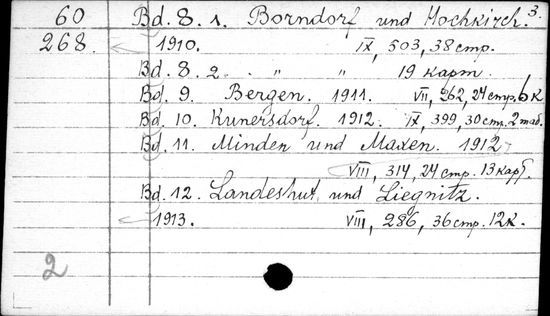 60 Bd. 8. 1. Borndorf und Hochkirch. 3.
268. 1910. IX, 503, 38 стр.
Bd. 8. 2. " " 19 карт.
Bd. 9. Bergen. 1911. VII, 262, 24 стр. 6 к
Bd. 10. Kunersdorf. 1912. IX, 399, 30 стр. 2 таб.
Bd. 11. Minden und Maxen. 1912
VIII, 314, 24 стр. 13 карт.
Bd. 12. Landeshut und Liegnitz.
1913. VIII, 286, 36 стр. 12 к.
2